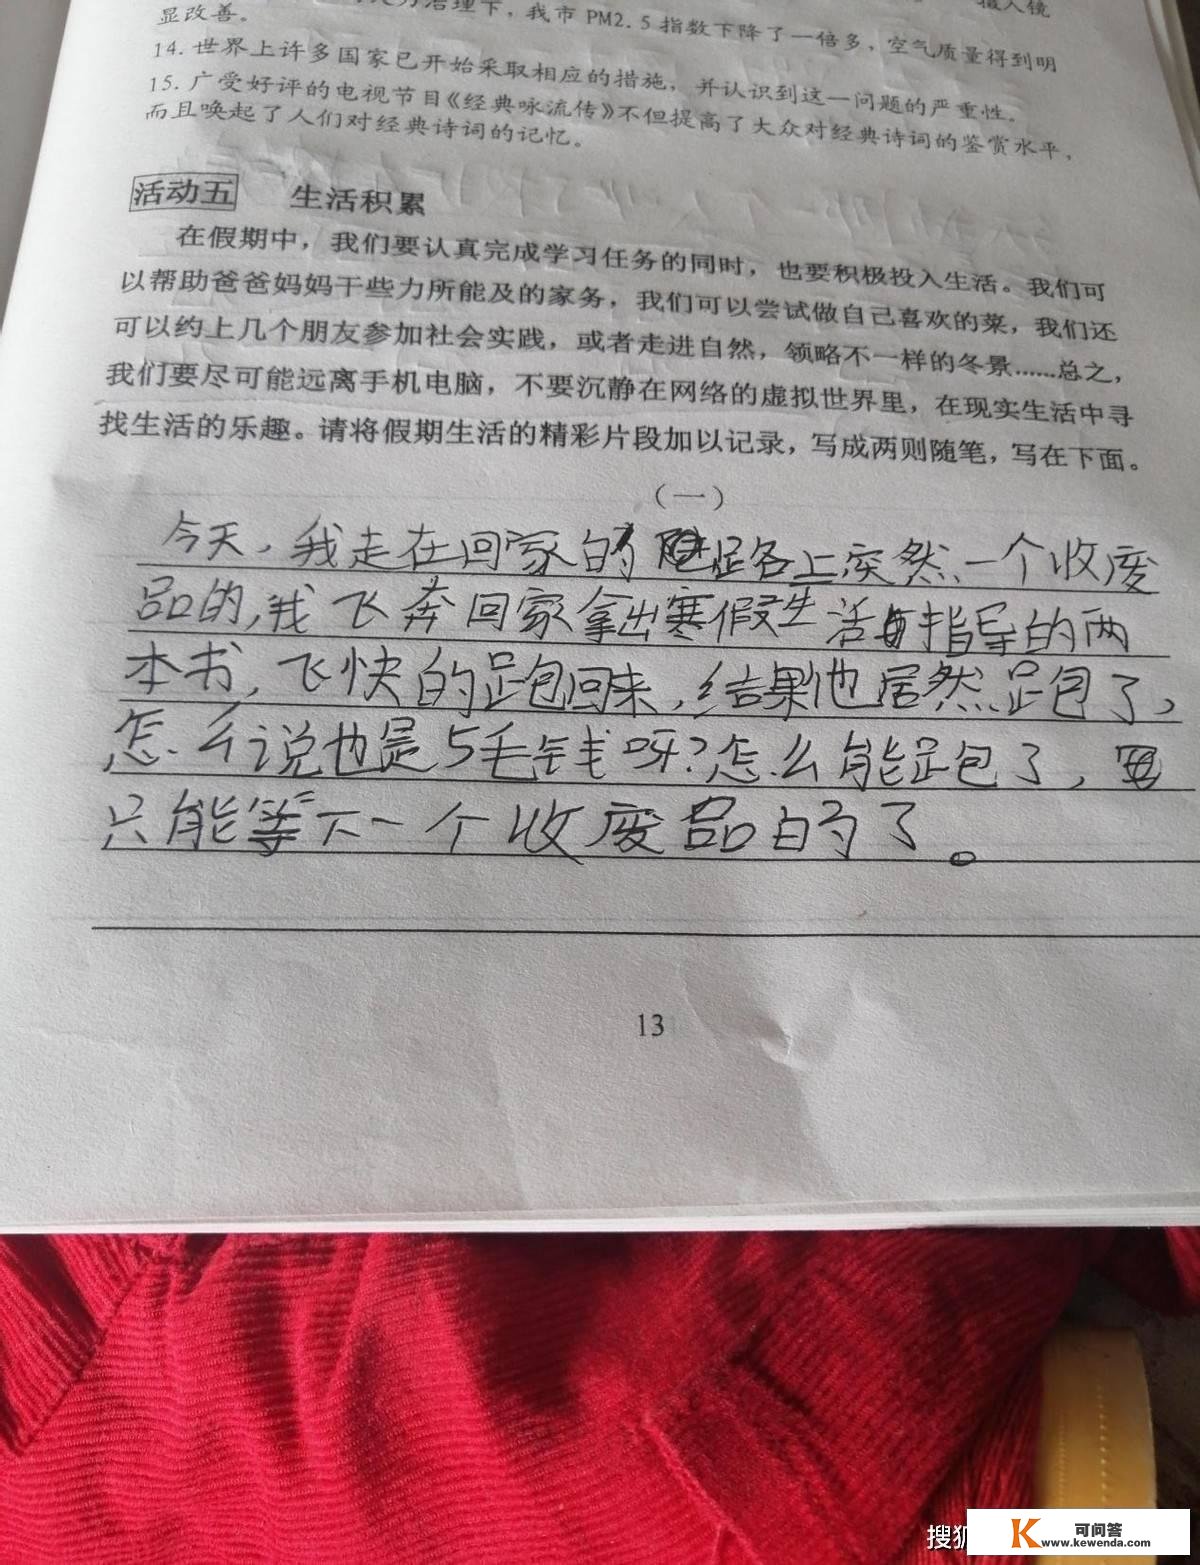 治理下，我市PM2.5指数下降了一倍多，空气质量得到明
显改善。
14.世界上许多国家已开始采取相应的措施，并认识到这一问题的严重性。
15.广受好评的电视节目《经典咏流传》不但提高了大众对经典诗词的鉴赏水平，
而且唤起了人们对经典诗词的记忆。
活动五 生活积累
在假期中，我们要认真完成学习任务的同时，也要积极投入生活。我们可
以帮助爸爸妈妈干些力所能及的家务，我们可以尝试做自己喜欢的菜，我们还
可以约上几个朋友参加社会实践，或者走进自然，领略不一样的冬景……总之，
我们要尽可能远离手机电脑，不要沉静在网络的虚拟世界里，在现实生活中寻
找生活的乐趣。请将假期生活的精彩片段加以记录，写成两则随笔，写在下面。
（一）
今天，我走在回家的路上突然、一个收废
品的，我飞奔回家拿出寒假生活与指导的两
本书，飞快的跑回来，结果他居然跑了，
怎么说也是5毛钱呀？怎么能跑了，
只能等下一个收废品的了。
13
搜狐
K 可问答
www.kewenda.com